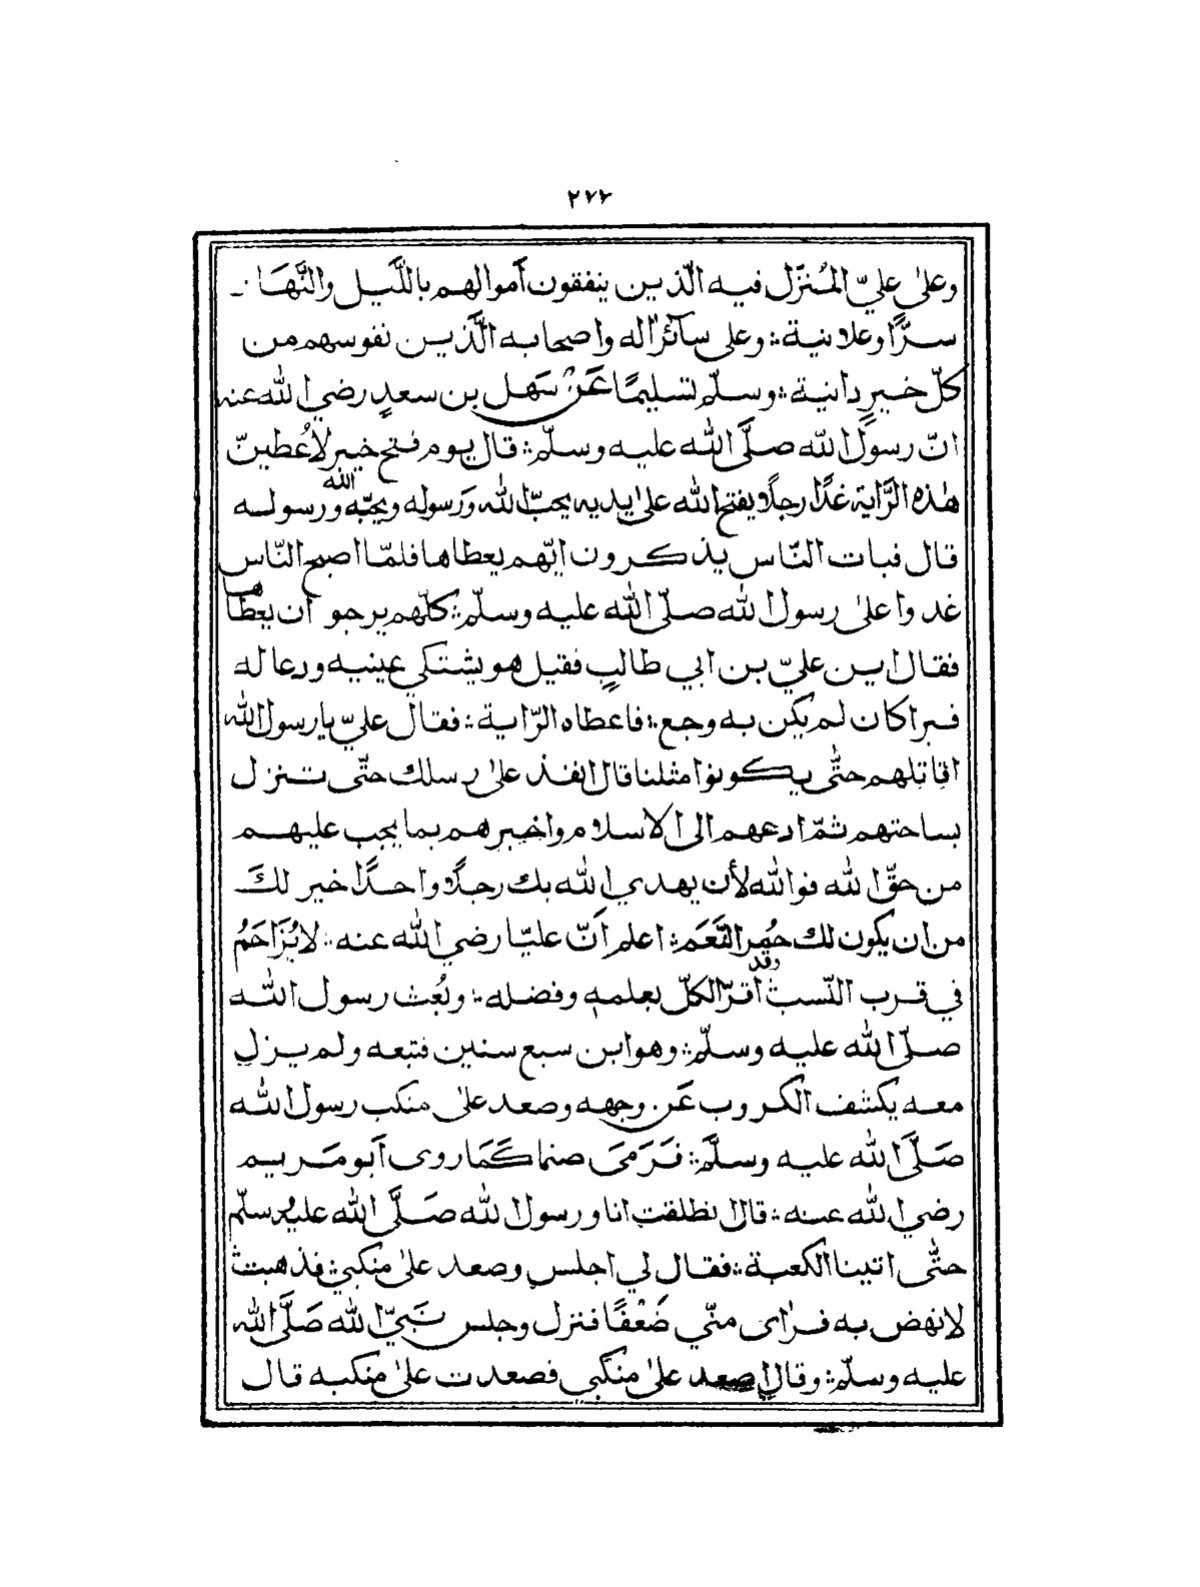 ٢٧٧
وعلىٰ عليّ المُنزَّل فيه الّذين ينفقون أموالهم باللَّيل والنَّهَار
سرًّا وعلانية ؛ وعلى سآئر اٰله واصحابه الَّذين نفوسهم من
كلّ خيرٍ دانية ؛ وسلّم تسليمًا عَنْ سَهل بن سعدٍ رضي الله عنه
انّ رسولَ الله صلَّى الله عليه وسلّم ؛ قال يوم فتح خيبر لاُعطينّ
هٰذه الرَّاية غدًا رجلًا يفتح الله علىٰ يديه يحبّ الله وَرسوله ويحبّه الله ورسوله
قال فبات النّاس يذكرون ايّهم يعطاها فلمّا اصبح النّاس
غدوا علىٰ رسول الله صلّى الله عليه وسلّم ؛ كلّهم يرجو ان يعطاها
فقال اين عليّ بن ابي طالبٍ فقيل هو يشتكي عينيه ودعا له
فبرا كان لم يكن به وجع ؛ فاعطاه الرّاية ؛ فقال عليّ يا رسول الله
اقاتلهم حتّٰى يكونوا مثلنا قال انفذ علىٰ رسلك حتّى تنزل
بساحتهم ثمّ ادعهم الى الاسلام واخبرهم بما يجب عليهم
من حقّ الله فوالله لأن يهدي الله بك رجلًا واحدًا خير لكَ
من ان يكون لك حُمر النَّعَم ؛ اعلم اَنّ عليّا رضي الله عنه ؛ لا يُزَاحَمُ
في قرب النّسب وقد اقرّ الكلّ بعلمه وفضله ؛ وبُعث رسول الله
صلّى الله عليه وسلّم ؛ وهو ابن سبع سنين فتبعه ولم يزل
معه يكشف الكروب عَن وجهه وصعد علىٰ منكب رسول الله
صَلَّى الله عليه وسلَّم ؛ فَرَمىَ صنما كَمَا روى اَبو مَريم
رضي الله عنه ؛ قال انطلقت انا ورسول الله صَلَّى الله عليه وسلّم
حتّٰى اتينا الكعبة ؛ فقال لي اجلس وصعد علىٰ منكبي ؛ فذهبت
لانهض به فرأى منّي ضَعْفًا فنزل وجلس نَبيّ الله صَلَّى الله
عليه وسلّم ؛ وقال اصعد علىٰ منكبي فصعدت علىٰ منكبه قال